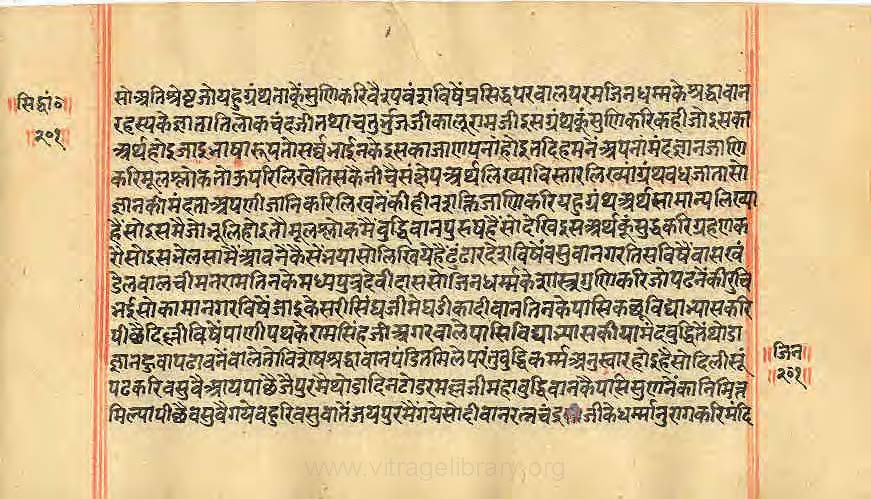 सोअतिश्रेष्टजोयहुग्रंथताकूंसुणिकरिवैरूपवंशविषेंप्रसिद्धपरवालपरमजिनधर्म्मकेश्रद्धावान
॥सिद्धांo॥
॥२०१॥
रहस्यकेज्ञातातिलोकचंदजीतथाचतुर्भुजजीकालूरामजीइसग्रंथकूंसुणिकरिकहीजोइसका
अर्थहोइजाइभाषारूपतोसर्वभाईनकेइसकाजाणपनोहोइतदिहमनेंअपनोमंदज्ञानजाणि
करिमूलश्लोकतोऊपरिलिखेतिसकेनीचेसंक्षेपअर्थलिख्याविस्तारलिख्यांग्रंथवधजातासो
ज्ञानकीमंदताअपणीजानिकरिलिखनेंकीहीनशक्तिजाणिकरियहुग्रंथअर्थसामान्यलिख्या
हैसोइसमैजोभूलिहोइतौमूलश्लोकमैबुद्धिवानपुरुषहैसोदेखिइसअर्थकूंसुद्धकरिग्रहणक
रोसोइसमेलसामैंआवनेकैसेंभयासोलिखियेहैढुंढारदेशविषेंवसुवानगरतिसविषैंवासखं
डेलवालचीमनरामतिनकेमध्यपुत्रदेवीदाससोजिनधर्म्मकेशास्त्रग्रुणिकरिजोपढनेंकीरुचि
भईसोकामानगरविषेंजाइकेसरीसिंघजीमेघडीकादीवानतिनकेपासिकछुविद्याभ्यासकरि
पीछैदिल्लीविषेंपाणीपथकेरामसिंहजीअगरवालेपासिविद्याभ्यासकीयामंदबुद्धितेंथोडा
॥जिन॥
॥२०१॥
ज्ञानहुवापढावनेंवालेतोविशेषश्रद्धावानपंडितमिलेपरंतुबुद्धिकर्म्मअनुस्वारहोइहैसोदिलीसूं
पढकरिवसुवैआयपाछैजैपुरमेंथोडादिनटोडरमल्लजीमहाबुद्धिवानकैपासिसुणनेंकानिमित्त
मिल्यापीछैवसुवैगयेवहुरिवसुवातेंजयपुरमैंगयेसोदीवानरतनचंदजीकेधर्मानुरागकरिमंदि
www.vitragelibrary.org